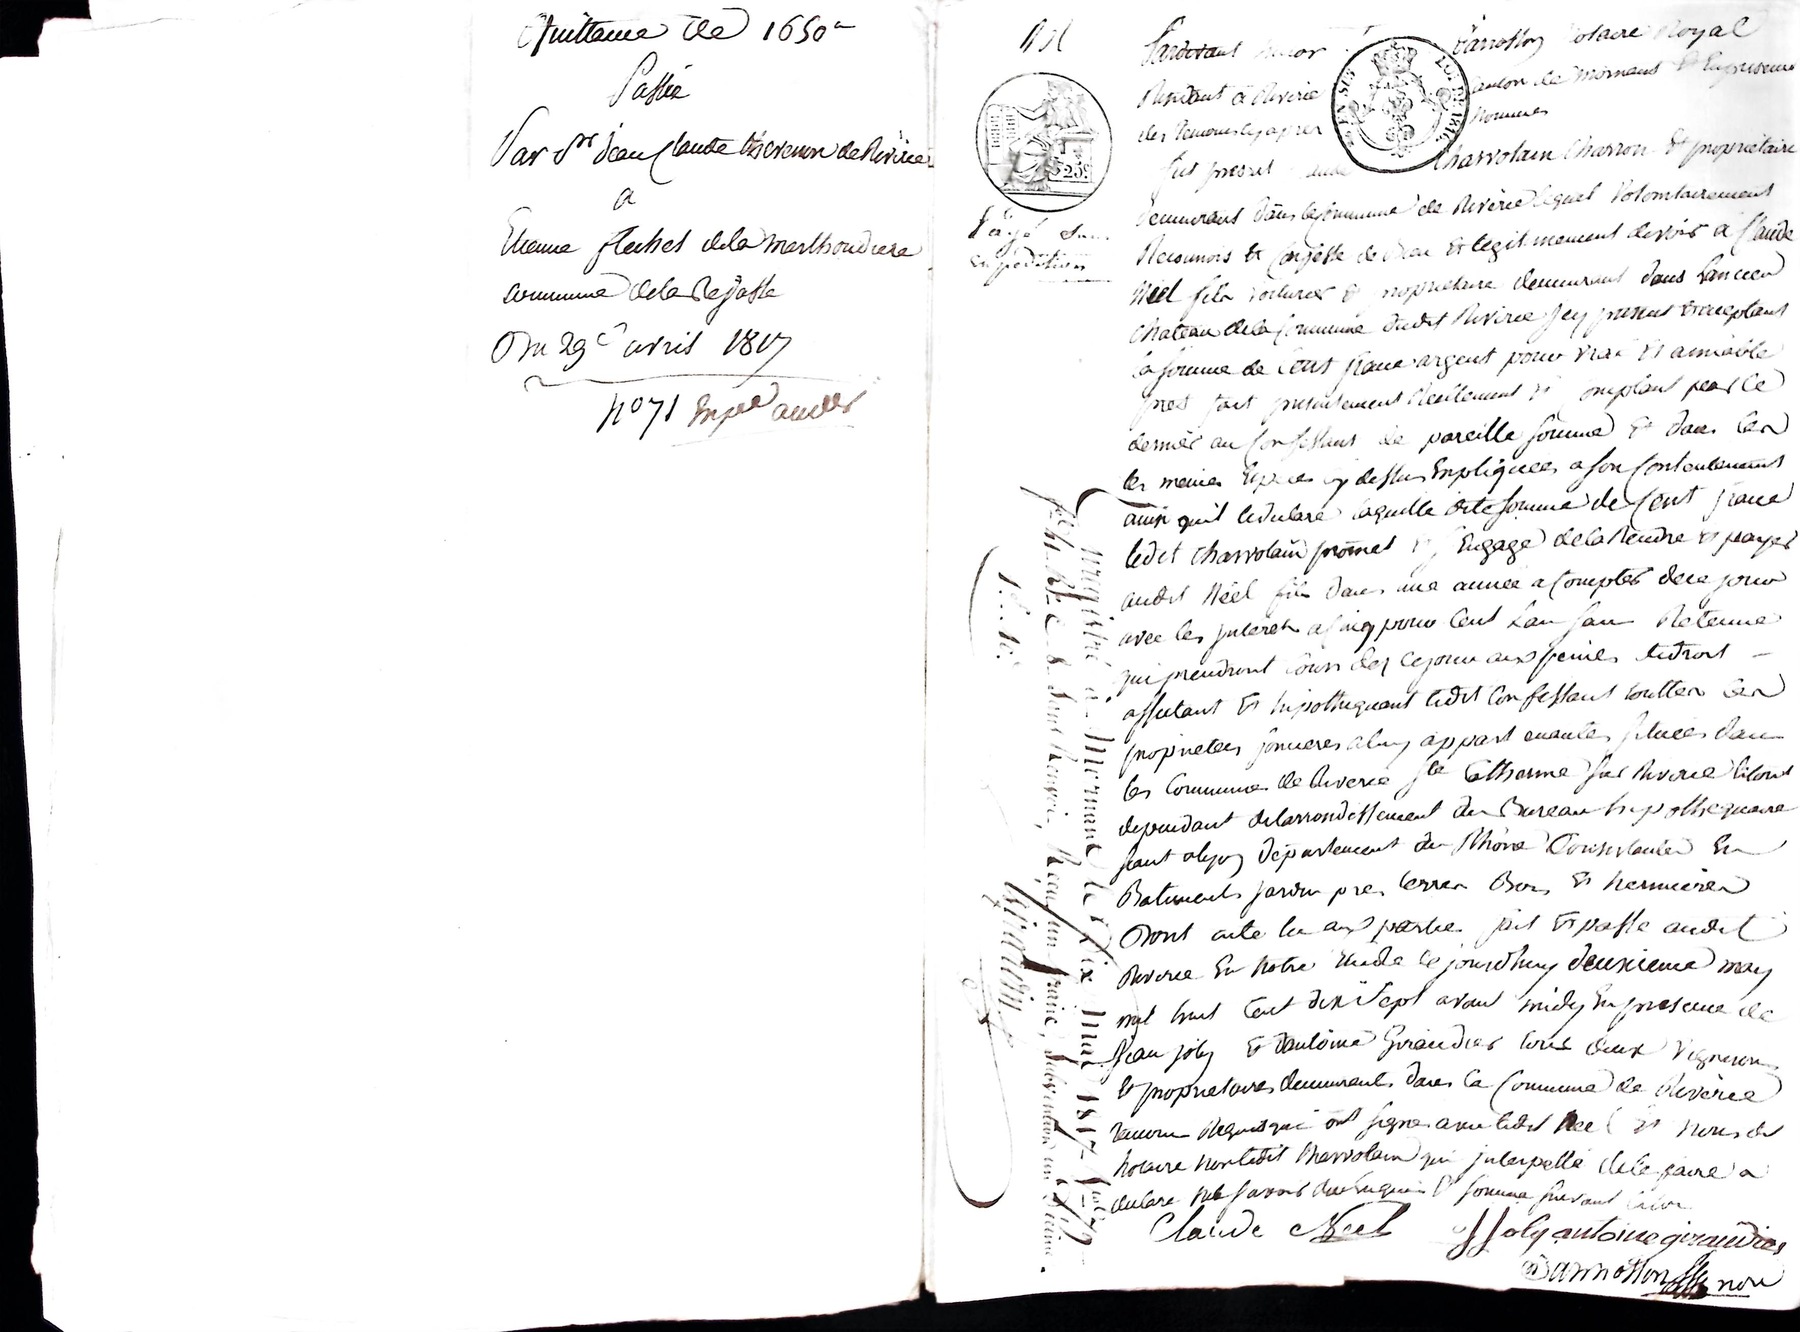 Quittance de 1650
Passée
Par Sr jean Claude thevenon de Riverie
a
Etienne flechet de la marthoudiere
commune de la Rajasse
Du 29e avril 1817
no 71
Pardevant Jarrosson Notaire Royal
Residant à Riverie canton de mornant
des temoins cy apres nommes
fut present Charvolain Charron et proprietaire
demeurant dans la commune de Riverie lequel volontairement
Reconnois et Confesse devoir et legitimement devoir a Claude
Néel fils voiturier et proprietaire demeurant dans lancien
chateau de la Commune dudit Riverie jcy present et acceptant
la somme de Cent francs argent pour vrai et amiable
pret fait presentement Réellement et comptant par ce
dernier au Confessant de pareille somme et dans les
les memes Especes cy dessus Expliquées a son Contentement
ainsi quil le declare laquelle dite somme de Cent francs
ledit Charvolain promet et sEngage de la Rendre et payer
audit Néel fils dans une année a Compter de ce jour
avec les jnterets a cinq pour Cent Lan sans Retenue
qui prendront Cours des ce jour aux peines de droit
affectant et hipothequant ledit Confessant touttes ses
proprietes foncieres a luy appartenantes situées dans
les Communes de Riverie Ste Catherine sur Riverie
dependant de larrondissement du Bureau hipothequaire
seant a lyon département du Rhône Consistantes En
Batiments jardin pres terres Bois et hermieres
Dont acte lu aux parties fait et passé audit
Riverie En notre Etude ce jourdhuy deuxieme may
mil huit Cent dix sept avant midy En presence de
Jean joly et dantoine Giraudier tous deux Vignerons
et proprietaires demeurants dans la Commune de Riverie
temoins Requis qui ont signé avec ledit Néel et nous dit
notaire non ledit Charvolain qui jnterpellé de le faire a
declaré ne savoir de ce Enquis et sommé suivant
Claude Neel
J Joly antoine giraudier
Jarrosson
Payé
expedition
Enregistré à Mornant le dix Mai 1817
Reçu un franc, subvention un décime
1 f. 10 c.
Girardin